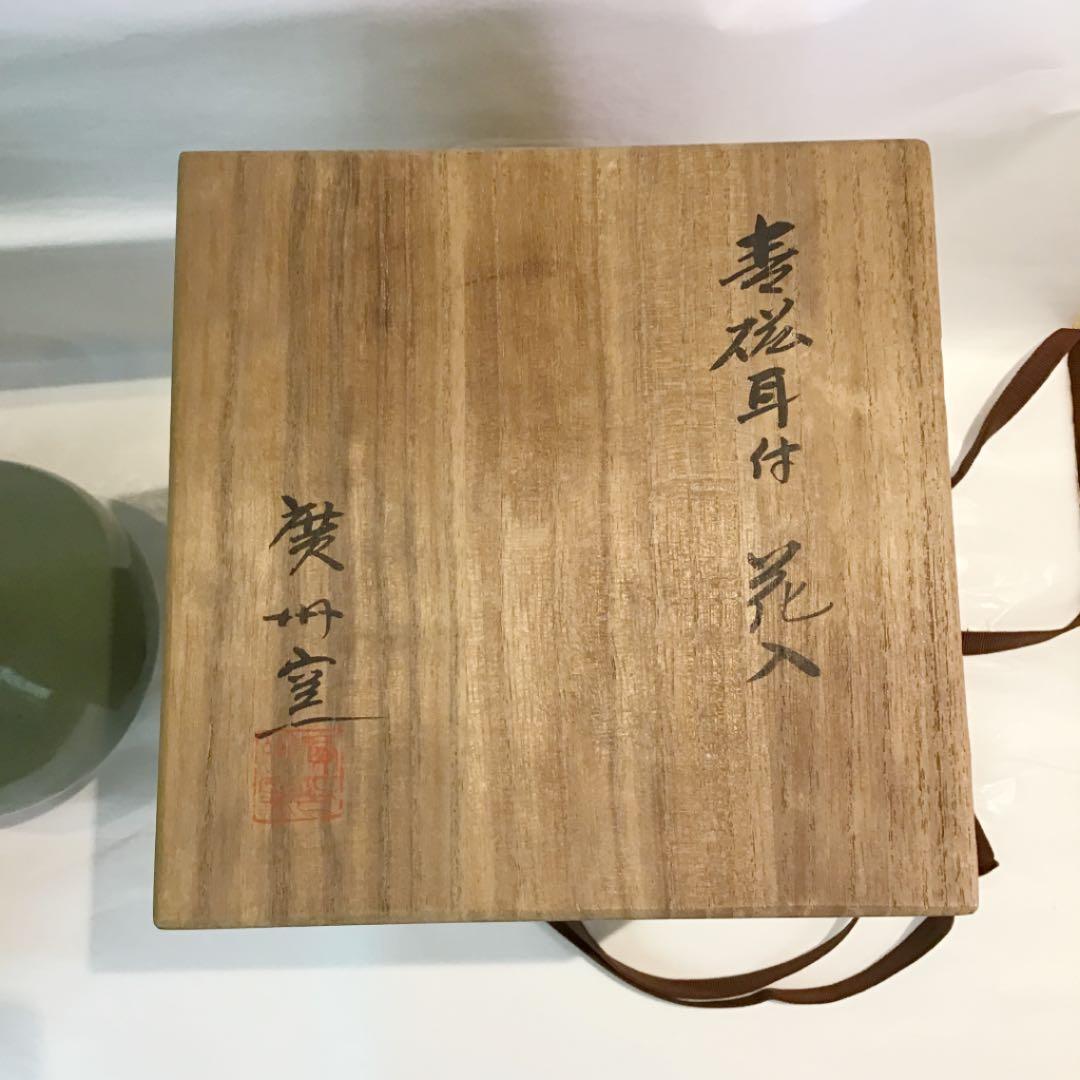 青磁耳付 花入
廣州窯